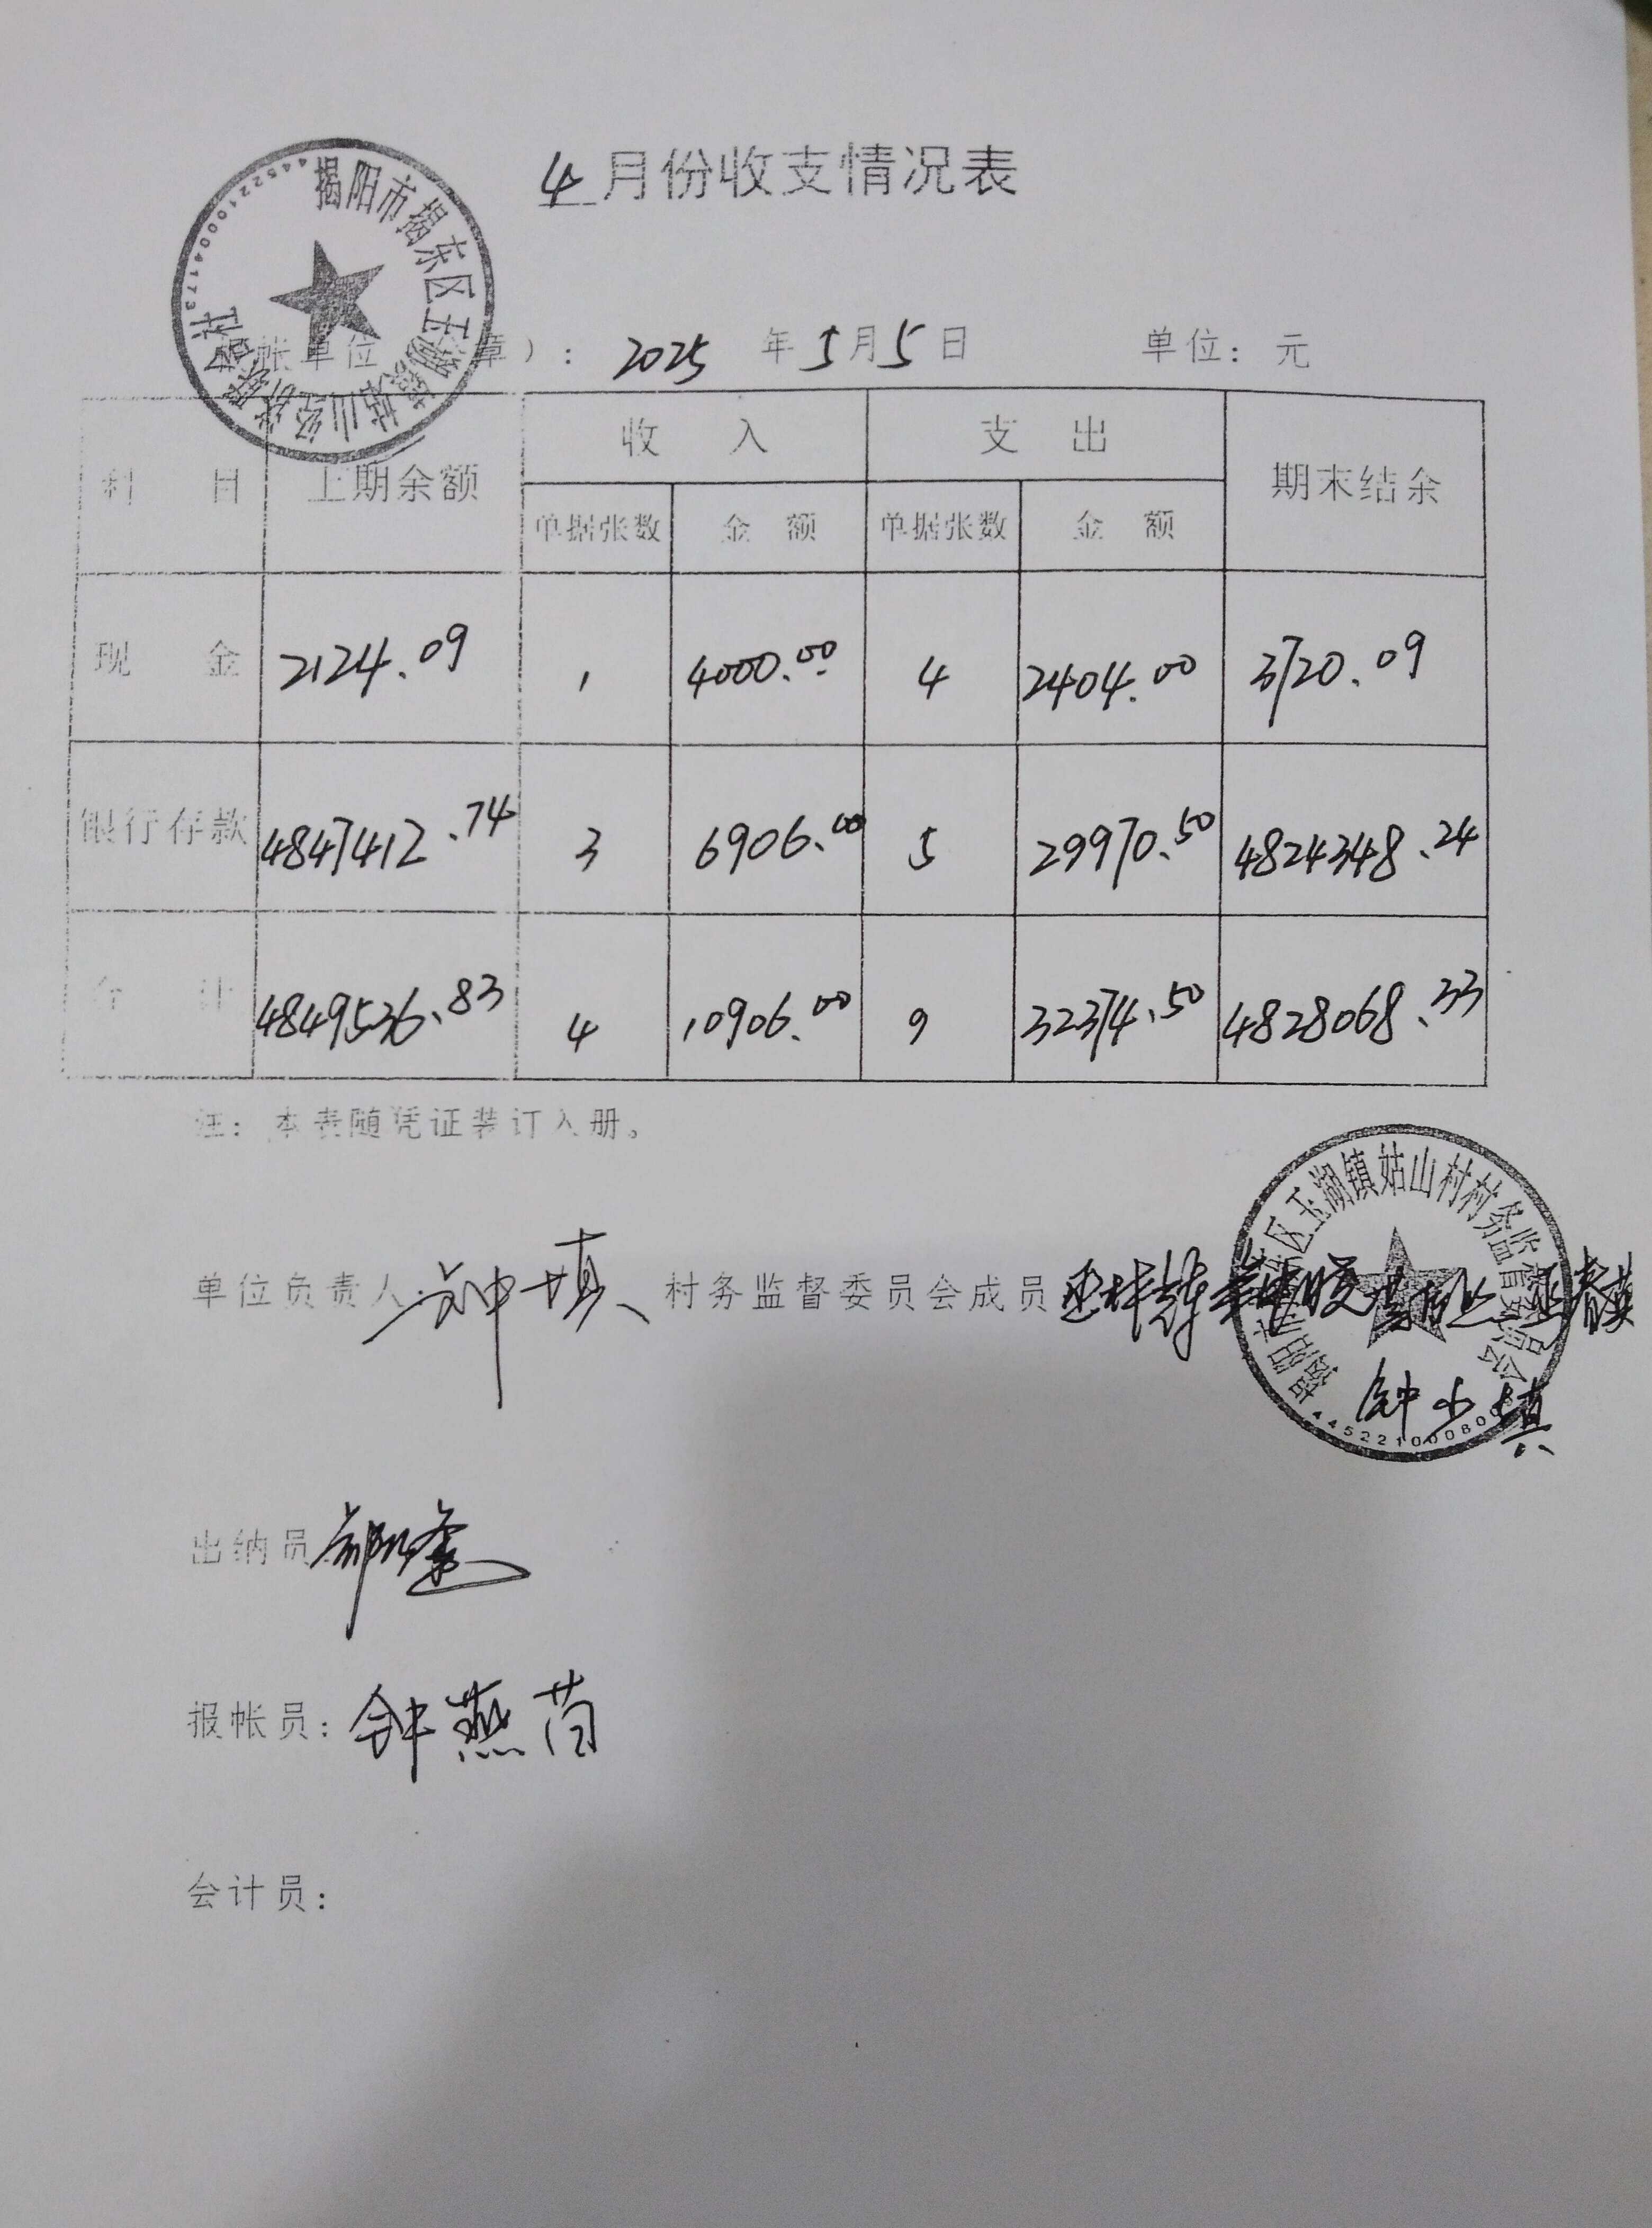 4月份收支情况表
揭阳市揭东区玉湖镇姑山经济联合社
4452210004173
报帐单位(盖章): 2025年5月5日 单位:元
科目 上期余额 收入 支出 期末结余
单据张数 金额 单据张数 金额
现金 2124.09 1 4000.00 4 2404.00 3720.09
银行存款 4847412.74 3 6906.00 5 29970.50 4824348.24
合计 4849536.83 4 10906.00 9 32374.50 4828068.33
注:本表随凭证装订入册。
区玉湖镇姑山村村务监督委员会
单位负责人: 钟填 村务监督委员会成员
钟少填
出纳员
报帐员: 钟燕苗
会计员: